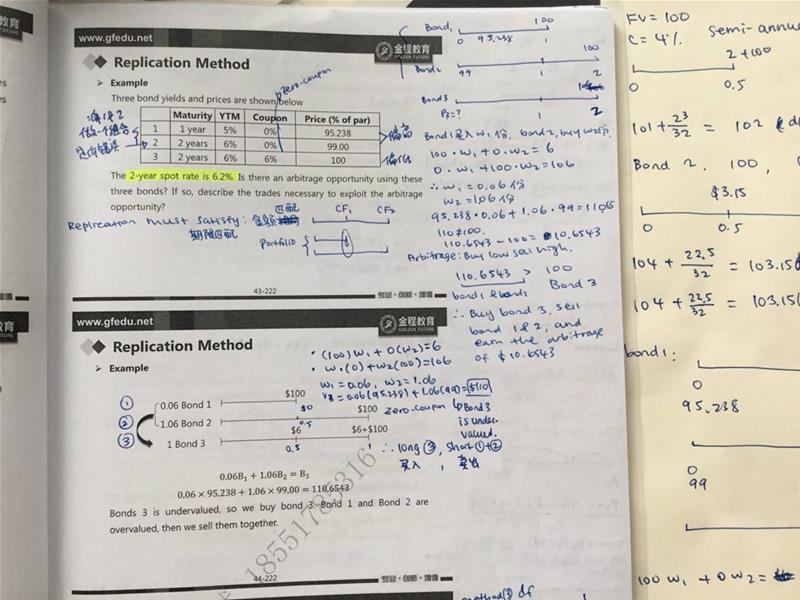 www.gfedu.net
金程教育
GOLDEN FUTURE
Replication Method
Example
zero-coupon
Three bond yields and prices are shown below
Maturity YTM Coupon Price (% of par)
1 1 year 5% 0% 95.238
2 2 years 6% 0% 99.00
3 2 years 6% 6% 100
偏高
偏低
The 2-year spot rate is 6.2%. Is there an arbitrage opportunity using these
three bonds? If so, describe the trades necessary to exploit the arbitrage
opportunity?
Replication must satisfy: 金额匹配
期限匹配
CF₁ CF₂
Portfolio
43-222
专业·创新·增值
Bond₁ 100
0 95.238 1
Bond₂ 100
99 1 2
Bond 3
P₃=? 1 2
Bond 1 买入 w₁ 份, bond 2, buy w₂份
100·w₁+0·w₂=6
0·w₁+100·w₂=106
∴ w₁=0.06份
w₂=1.06份
95.238·0.06+1.06·99=110.65
110≠100.
110.6543-100=10.6543
Arbitrage: Buy low sell high.
110.6543 > 100
Bond 3
∴ Buy bond 3, sell
bond 1&2, and
earn the arbitrage
of $10.6543
www.gfedu.net
金程教育
GOLDEN FUTURE
Replication Method
Example
(100)w₁+0(w₂)=6
w₁(0)+w₂(100)=106
w₁=0.06, w₂=1.06
V₃=0.06(95.238)+1.06(99)=$110
① 0.06 Bond 1 $100
② 1.06 Bond 2 $0 $100
0.5
③ 1 Bond 3 $6 $6+$100
0.5 1
zero-coupon
Bond 3
is under-
valued.
∴ long ③, short ①+②
买入, 卖出
0.06B₁ + 1.06B₂ = B₃
0.06 × 95.238 + 1.06 × 99.00 = 110.6543
Bonds 3 is undervalued, so we buy bond 3. Bond 1 and Bond 2 are
overvalued, then we sell them together.
18551785316
44-222
专业·创新·增值
FV=100
C=4% semi-annu
2+100
0 0.5
101+23/32=102
Bond 2. 100,
$3.15
0 0.5
104+22.5/32=103.15
104+22.5/32=103.15
bond 1:
0
95.238
0
99
100w₁+0w₂=
method③ df